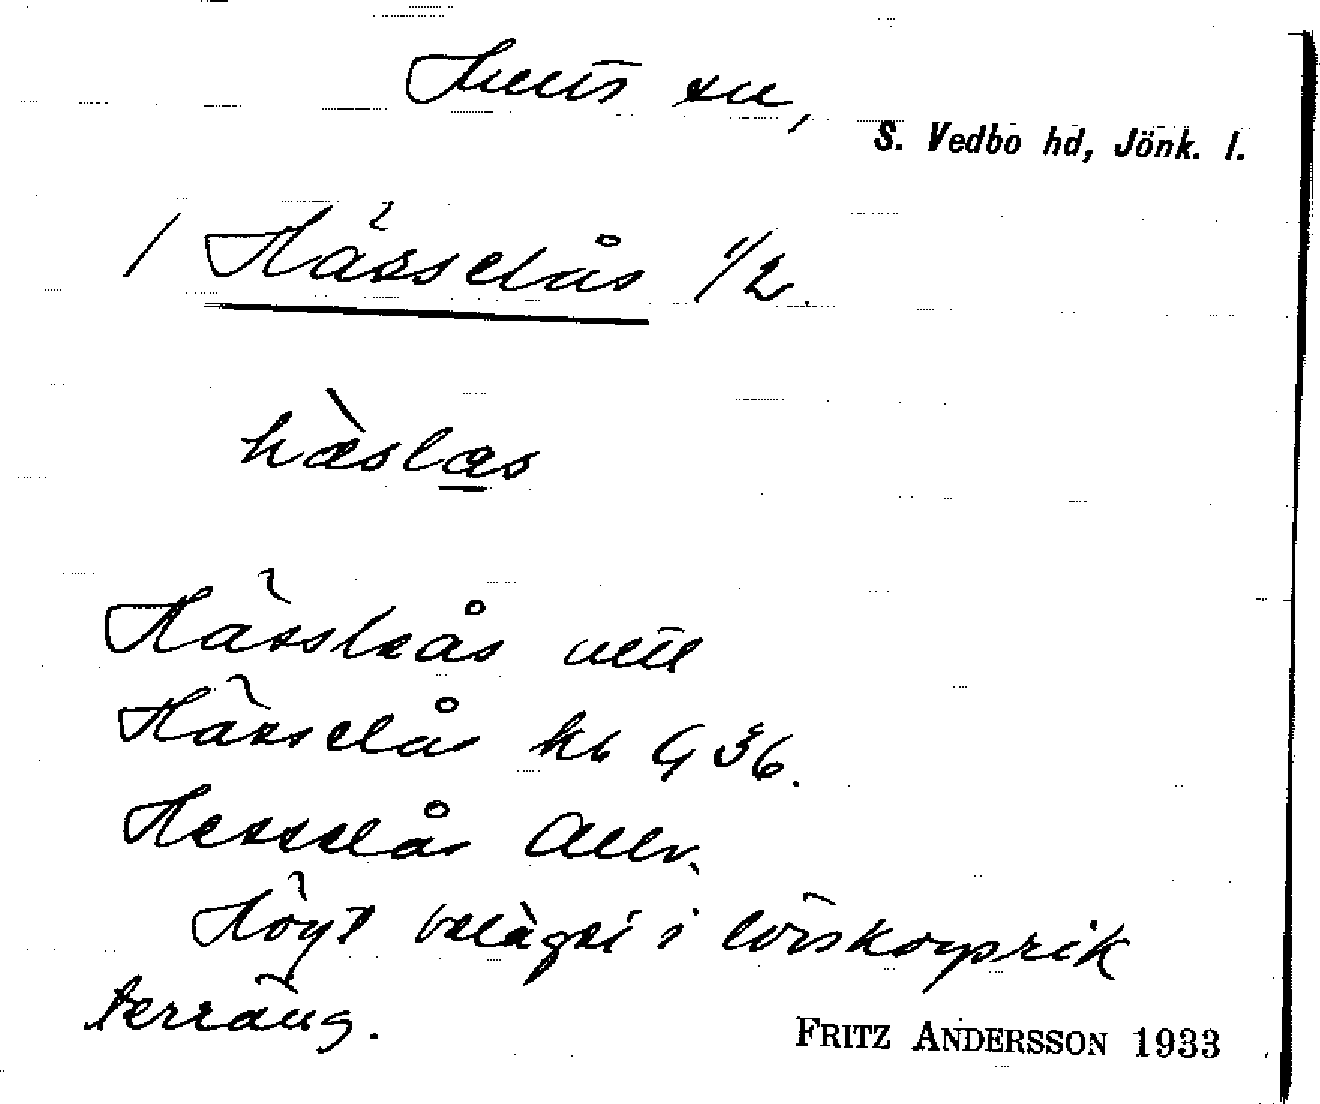 Hults sn,
S. Vedbo hd, Jönk. l.
/ Hässelås 1/2.
hæ̀slas
Hässleås uttl
Hässelås kb G 36.
Hesselås Allv.
Högt belägri i lövskogsrik
terräng.
FRITZ ANDERSSON 1933